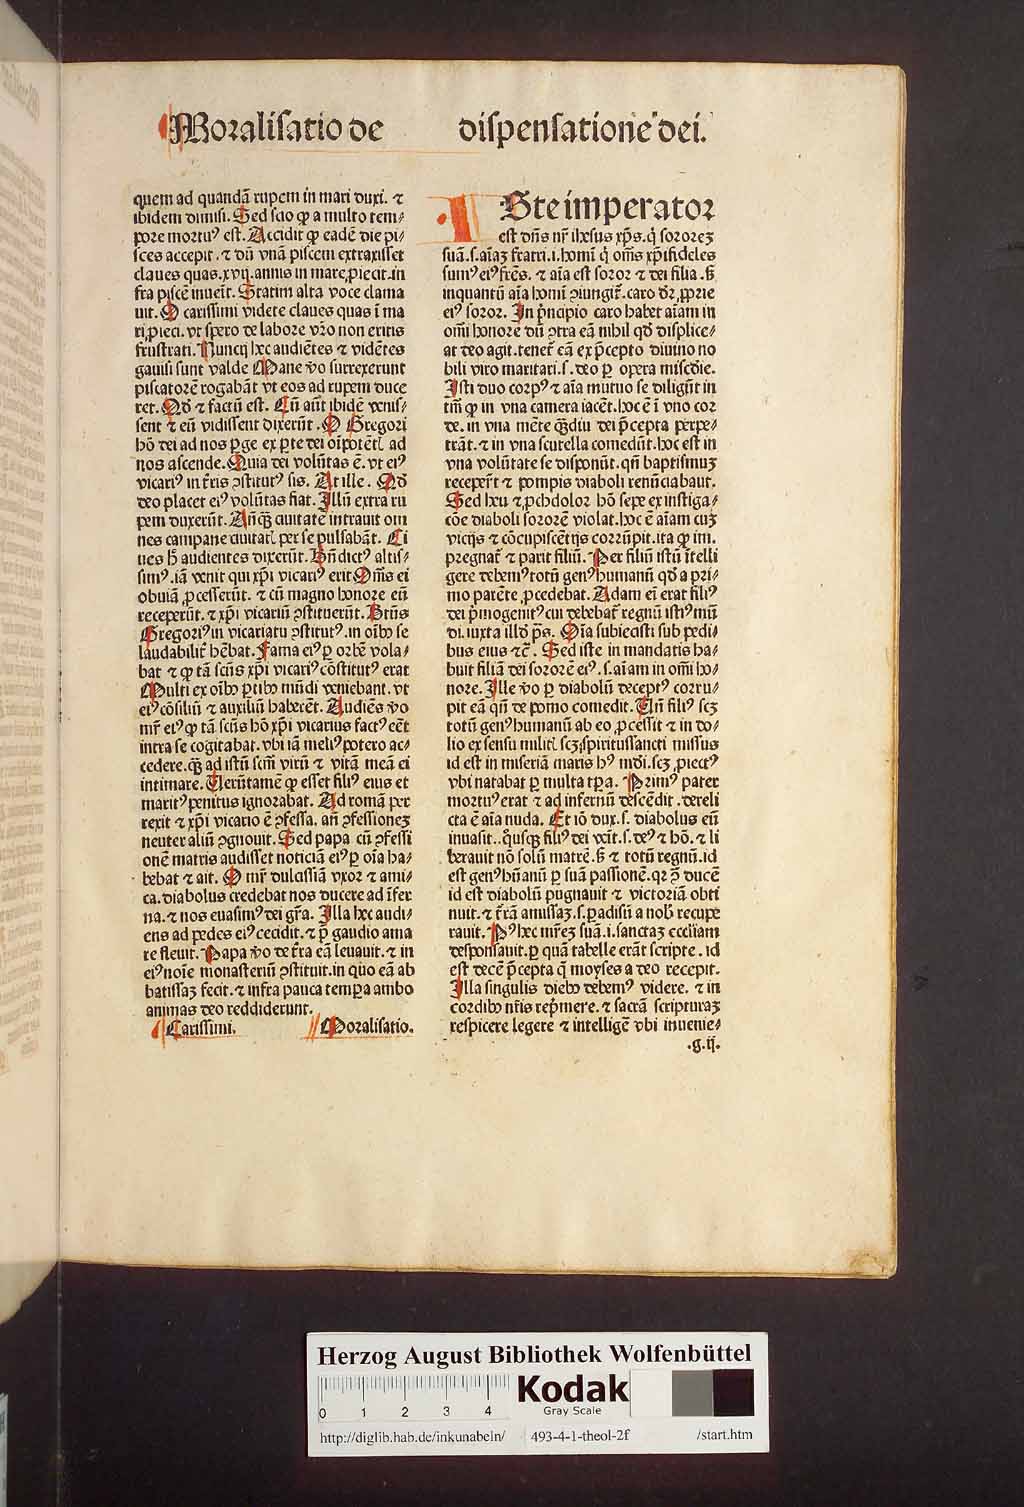 Moralisatio de dispensatione dei.
quem ad quandã rupem in mari duxi. ⁊
ibidem dimisi. Sed scio ꝙ a multo tem⸗
pore mortuꝰ est. Accidit ꝙ eadẽ die pi⸗
sces accepit. ⁊ dũ vnã piscem extraxisset
claues quas. xvij. annis in mare, ꝓiecit. in
fra piscẽ inuẽit. Statim alta voce clama
uit. O carissimi videte claues quas ĩ ma
ri, ꝓieci. vt spero de labore vr̃o non eritis
frustrati. Nuncij hec audiẽtes ⁊ vidẽtes
gauisi sunt valde Mane v̾o surrexerunt
piscatorẽ rogabãt vt eos ad rupem duce
ret. Qd̾ ⁊ factũ est. Cũ aũt ibidẽ venis⸗
sent ⁊ eũ vidissent dixerũt. O Gregori
hõ dei ad nos ꝑge ex ꝑte dei oĩpotẽtꝭ ad
nos ascende. Quia dei volũtas ẽ. vt eiꝰ
vicariꝰ in tr̃is ꝯstitutꝰ sis. At ille. Qd̾
deo placet eiꝰ volũtas fiat. Illũ extra ru
pem duxerũt. Anq̃ꝫ ciuitatẽ intrauit om
nes campane ciuitatꝭ per se pulsabãt. Ci
ues h̾ audientes dixerũt. Bñdictꝰ altis⸗
simꝰ. iã venit qui xp̃i vicariꝰ erit Om̃s ei
obuiã, ꝓcesserũt. ⁊ cũ magno honore eũ
receperũt. ⁊ xp̃i vicariũ ꝯstituerũt. Btũs
Gregoriꝰ in vicariatu ꝯstitutꝰ. in oĩbꝰ se
laudabilit̾ hẽbat. Fama eiꝰ ꝑ orbẽ vola⸗
bat ⁊ ꝙ tã scũs xp̃i vicariꝰ cõstitutꝰ erat
Multi ex oĩbꝰ ꝑtibꝰ mũdi veniebant. vt
eiꝰ cõsiliũ ⁊ auxiliũ haberẽt. Audiẽs v̾o
mr̃ eiꝰ ꝙ tã scũs hõ xp̃i vicarius factꝰ eẽt
intra se cogitabat. vbi iã meliꝰ potero ac⸗
cedere. q̃ꝫ ad istũ scm̃ virũ ⁊ vitã meã ei
intimare. Uerũtamẽ ꝙ esset filiꝰ eius et
maritꝰ penitus ignorabat. Ad romã per
rexit ⁊ xp̃i vicario ẽ ꝯfessa. añ ꝯfessioneꝫ
neuter aliũ ꝯgnouit. Sed papa cũ ꝯfessi
onẽ matris audisset noticiã eiꝰ ꝑ oĩa ha⸗
bebat ⁊ ait. O mr̃ dulcissiã vxor ⁊ ami⸗
ca. diabolus credebat nos ducere ad ĩfer
na. ⁊ nos euasimꝰ dei gr̃a. Illa hec audi⸗
ens ad pedes eiꝰ cecidit. ⁊ p̃ gaudio ama
re fleuit. Papa v̾o de tr̃a eã leuauit. ⁊ in
eiꝰ noĩe monasteriũ ꝯstituit. in quo eã ab
batissaꝫ fecit. ⁊ infra pauca tempa ambo
animas deo reddiderunt.
Carissimi. Moralisatio.
ISte imperator
est dñs nr̃ ihesus xp̃s. q̾ sororeꝫ
suã. s. aĩaꝫ fratri. i. homĩ q̾ om̃s xp̃ifideles
sumꝰ eiꝰ fr̃es. ⁊ aĩa est soror ⁊ dei filia. s̾
inquantũ aĩa homĩ ꝯiungit̾. caro dr̃, ꝓprie
eiꝰ soror. In p̾ncipio caro habet aĩam in
om̃i honore dũ ꝯtra eã nihil qd̾ displice⸗
at deo agit. tenet̾ eã ex p̃cepto diuino no
bili viro maritari. s. deo ꝑ opera misc̃die.
Isti duo corpꝰ ⁊ aĩa mutuo se diligũt in
tm̃ ꝙ in vna camera iacẽt. hoc ẽ ĩ vno cor
de. in vna mẽte q̃ꝫdiu dei p̃cepta perpe⸗
trãt. ⁊ in vna scutella comedũt. hoc est in
vna volũtate se disponũt. qñ baptismuꝫ
receper̃t ⁊ pompis diaboli renũciabãt.
Sed heu ⁊, ꝓchdolor hõ sepe ex instiga⸗
cõe diaboli sororẽ violat. hoc ẽ aĩam cuꝫ
vicijs ⁊ cõcupiscẽtijs corrũpit. ita ꝙ im.
pregnat̾ ⁊ parit filiũ. Per filiũ istũ ĩtelli
gere debemꝰ totũ genꝰ humanũ qd̾ a pri⸗
mo parẽte, ꝓcedebat. Adam eĩ erat filiꝰ
dei p̾mogenitꝰ cui debebat̾ regnũ istiꝰ mũ
di. iuxta illd̾ p̃s. Oĩa subiecisti sub pedi⸗
bus eius ⁊c̃. Sed iste in mandatis ha⸗
buit filiã dei sororẽ eiꝰ. s. aĩam in om̃i ho⸗
nore. Ille v̾o ꝑ diabolũ deceptꝰ corru⸗
pit eã qñ de pomo comedit. Uñ filiꝰ scꝫ
totũ genꝰ humanũ ab eo, ꝓcessit ⁊ in do⸗
lio ex sensu militꝭ scꝫ, spiritussancti missus
id est in miseriã maris hꝰ mũdi. scꝫ, ꝓiectꝰ
vbi natabat ꝑ multa tp̃a. Primꝰ pater
mortuꝰ erat ⁊ ad infernũ descẽdit. dereli
cta ẽ aĩa nuda. Et iõ dux. s. diabolus eũ
inuasit.. q̾usqꝫ filiꝰ dei veĩt. s. deꝰ ⁊ hõ. ⁊ li
berauit nõ solũ matrẽ. s̾ ⁊ totũ regnũ. id
est genꝰ hũanũ ꝑ suã passionẽ. qꝛ ꝯ̾ ducẽ
id est diabolũ pugnauit ⁊ victoriã obti
nuit. ⁊ tr̃ã amissaꝫ. s. ꝑadisũ a nobꝭ recupe
rauit. Pꝰ hec mr̃eꝫ suã. i. sanctaꝫ eccl̃iam
desponsauit. ꝑ quã tabelle erãt scripte. id
est decẽ p̃cepta q̃ moyses a deo recepit.
Illa singulis diebꝰ debemꝰ videre. ⁊ in
cordibꝰ nr̃is rep̾mere. ⁊ sacrã scripturaꝫ
respicere legere ⁊ intelligẽ vbi inuenie⸗
.g.ij.
Herzog August Bibliothek Wolfenbüttel
0 1 2 3 4
Kodak
Gray Scale
http://diglib.hab.de/inkunabeln/ 493-4-1-theol-2f /start.htm